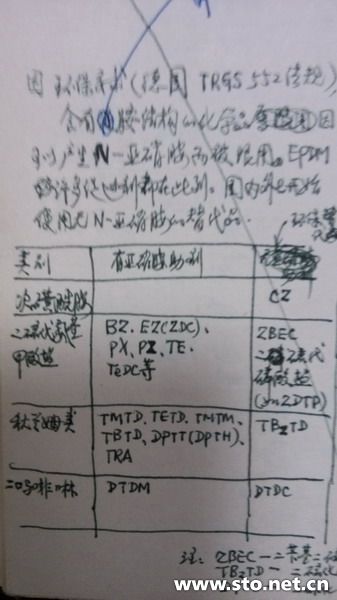 因环保要求(德国 TRGS 552法规),
含有 胺结构的化学品 因
可以产生N-亚硝胺而被限用。EPDM
的许多促进剂都在此列。国内外已开始
使用无N-亚硝胺的替代品.
类别
有亚硝胺助剂
环保替代
次磺酰胺
CZ
二硫代氨基
甲酸盐
BZ. EZ(ZDC)、
PX、PZ、TE.
TeDC等
ZBEC
二硫代
磷酸盐
(如ZDTP)
秋兰姆类
TMTD. TETD. TMTM、
TBTD、DPTT(DPTH)、
TRA
TBzTD
二吗啡啉
DTDM
DTDC
注: ZBEC一二苄基二硫
TBzTD一二硫化
www.sto.net.cn